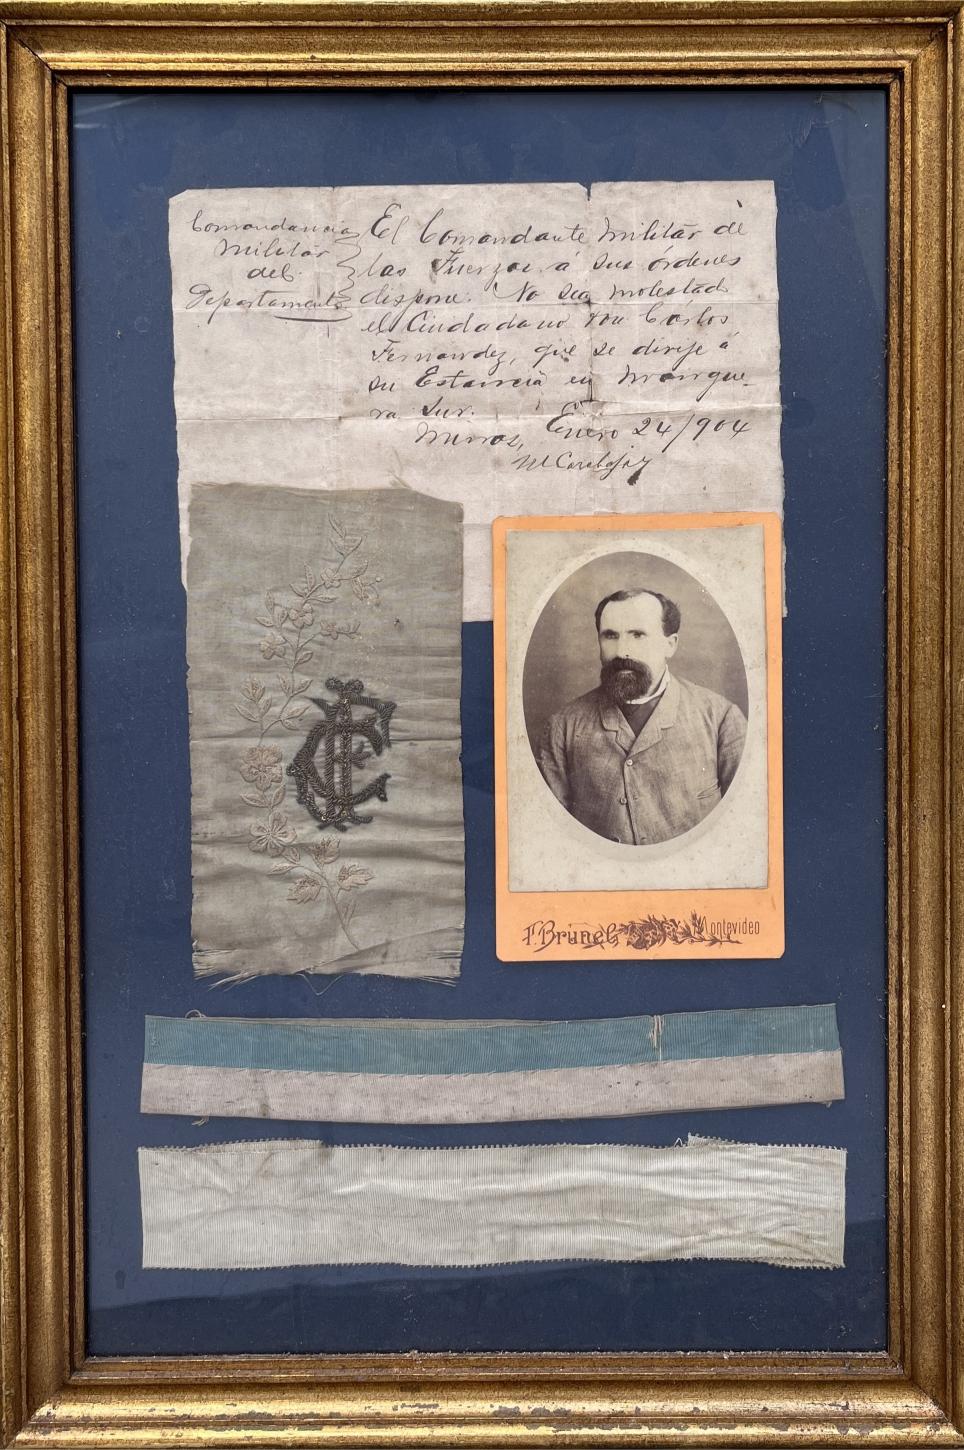 Comandancia
Militar
del
Departamento
El Comandante Militar de
las Fuerzas á sus ordenes
dispone. No sea molestado
el Ciudadano Don Carlos
Fernandez, que se dirije á
su Estancia en Mangue-
ra Sur.
Minas, Enero 24/904
F. Brunel Montevideo